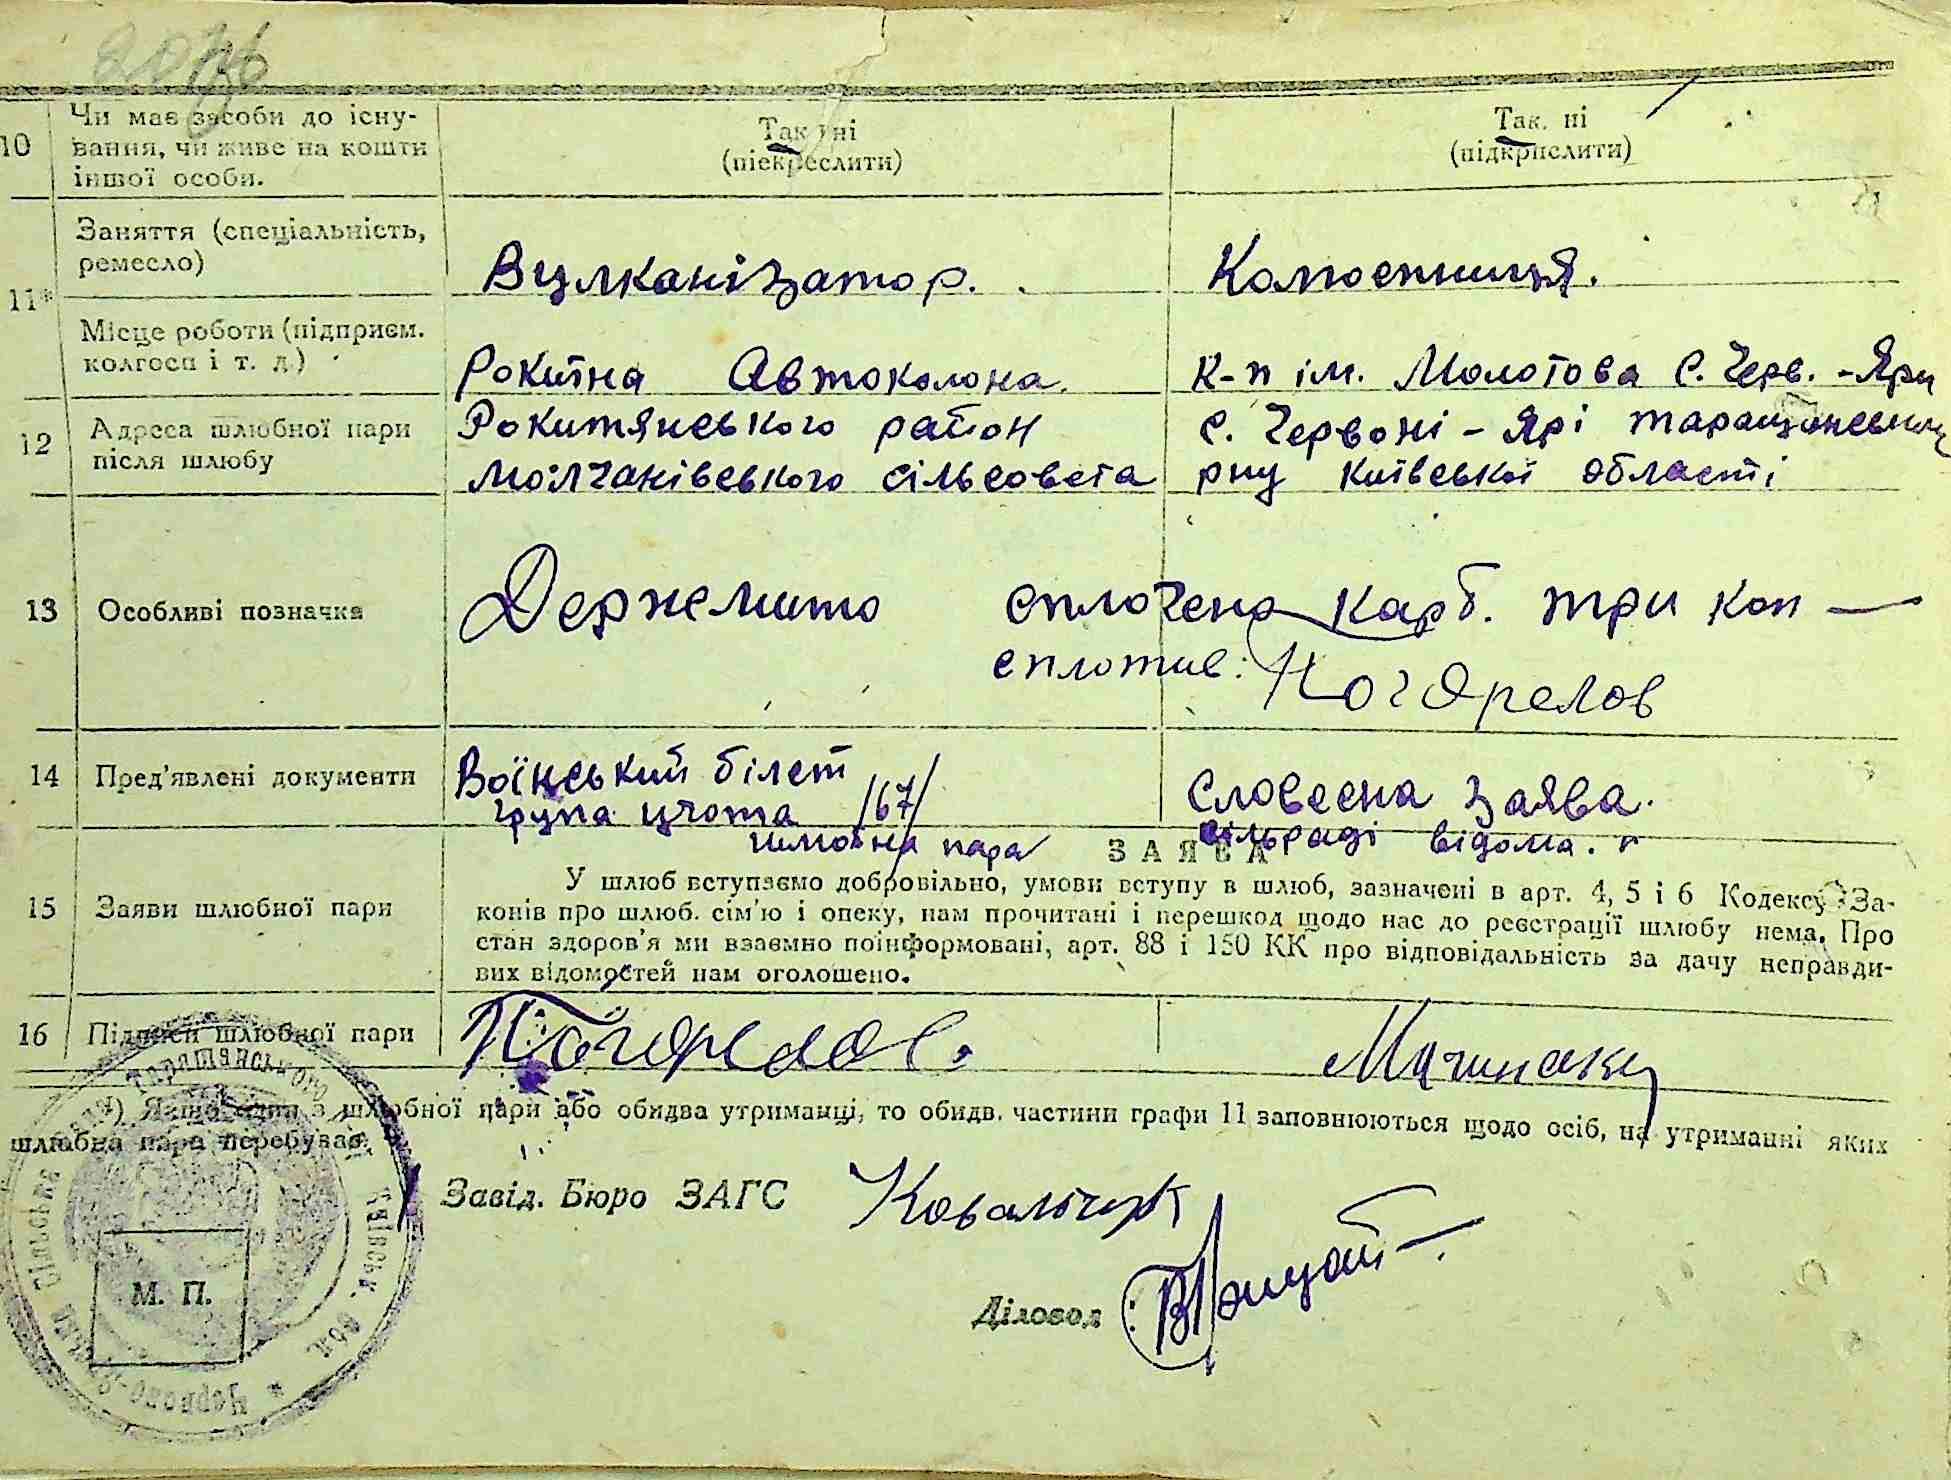 10 Чи має засоби до існу-
вання, чи живе на кошти
іншої особи.
Так ні
(піекреслити)
Так. ні
(підкрислити)
11* Заняття (спеціальність,
ремесло)
Вулканізатор.
Колгоспниця.
Місце роботи (підприєм.
колгосп і т. д.)
Рокитна Автоколона.
к-п ім. Молотова с. Черв. - Яри
12 Адреса шлюбної пари
після шлюбу
Рокитянського район
Молчанівського сільсовета
с. Червоні - Ярі Таращанського
рну Київської області
13 Особливі позначка
Держмито сплочено карб. три коп —
сплотив: Погорелов
14 Пред'явлені документи
Воїнський білет
група учота /67/
Словесна заява.
сільраді відома.
шлюбна пара
15 Заяви шлюбної пари
ЗАЯВА
У шлюб вступаємо добровільно, умови вступу в шлюб, зазначені в арт. 4, 5 і 6 Кодексу За-
конів про шлюб. сім'ю і опеку, нам прочитані і перешкод щодо нас до реєстрації шлюбу нема. Про
стан здоров'я ми взаємно поінформовані, арт. 88 і 150 КК про відповідальність за дачу неправди-
вих відомостей нам оголошено.
16 Підписи шлюбної пари
Погорелов.
*) Якщо один з шлюбної пари або обидва утриманці, то обидв. частини графи 11 заповнюються щодо осіб, на утриманні яких
шлюбна пара перебуває.
Завід. Бюро ЗАГС
Ковальчук
М. П.
Діловод
Таращанського
Київськ. обл.